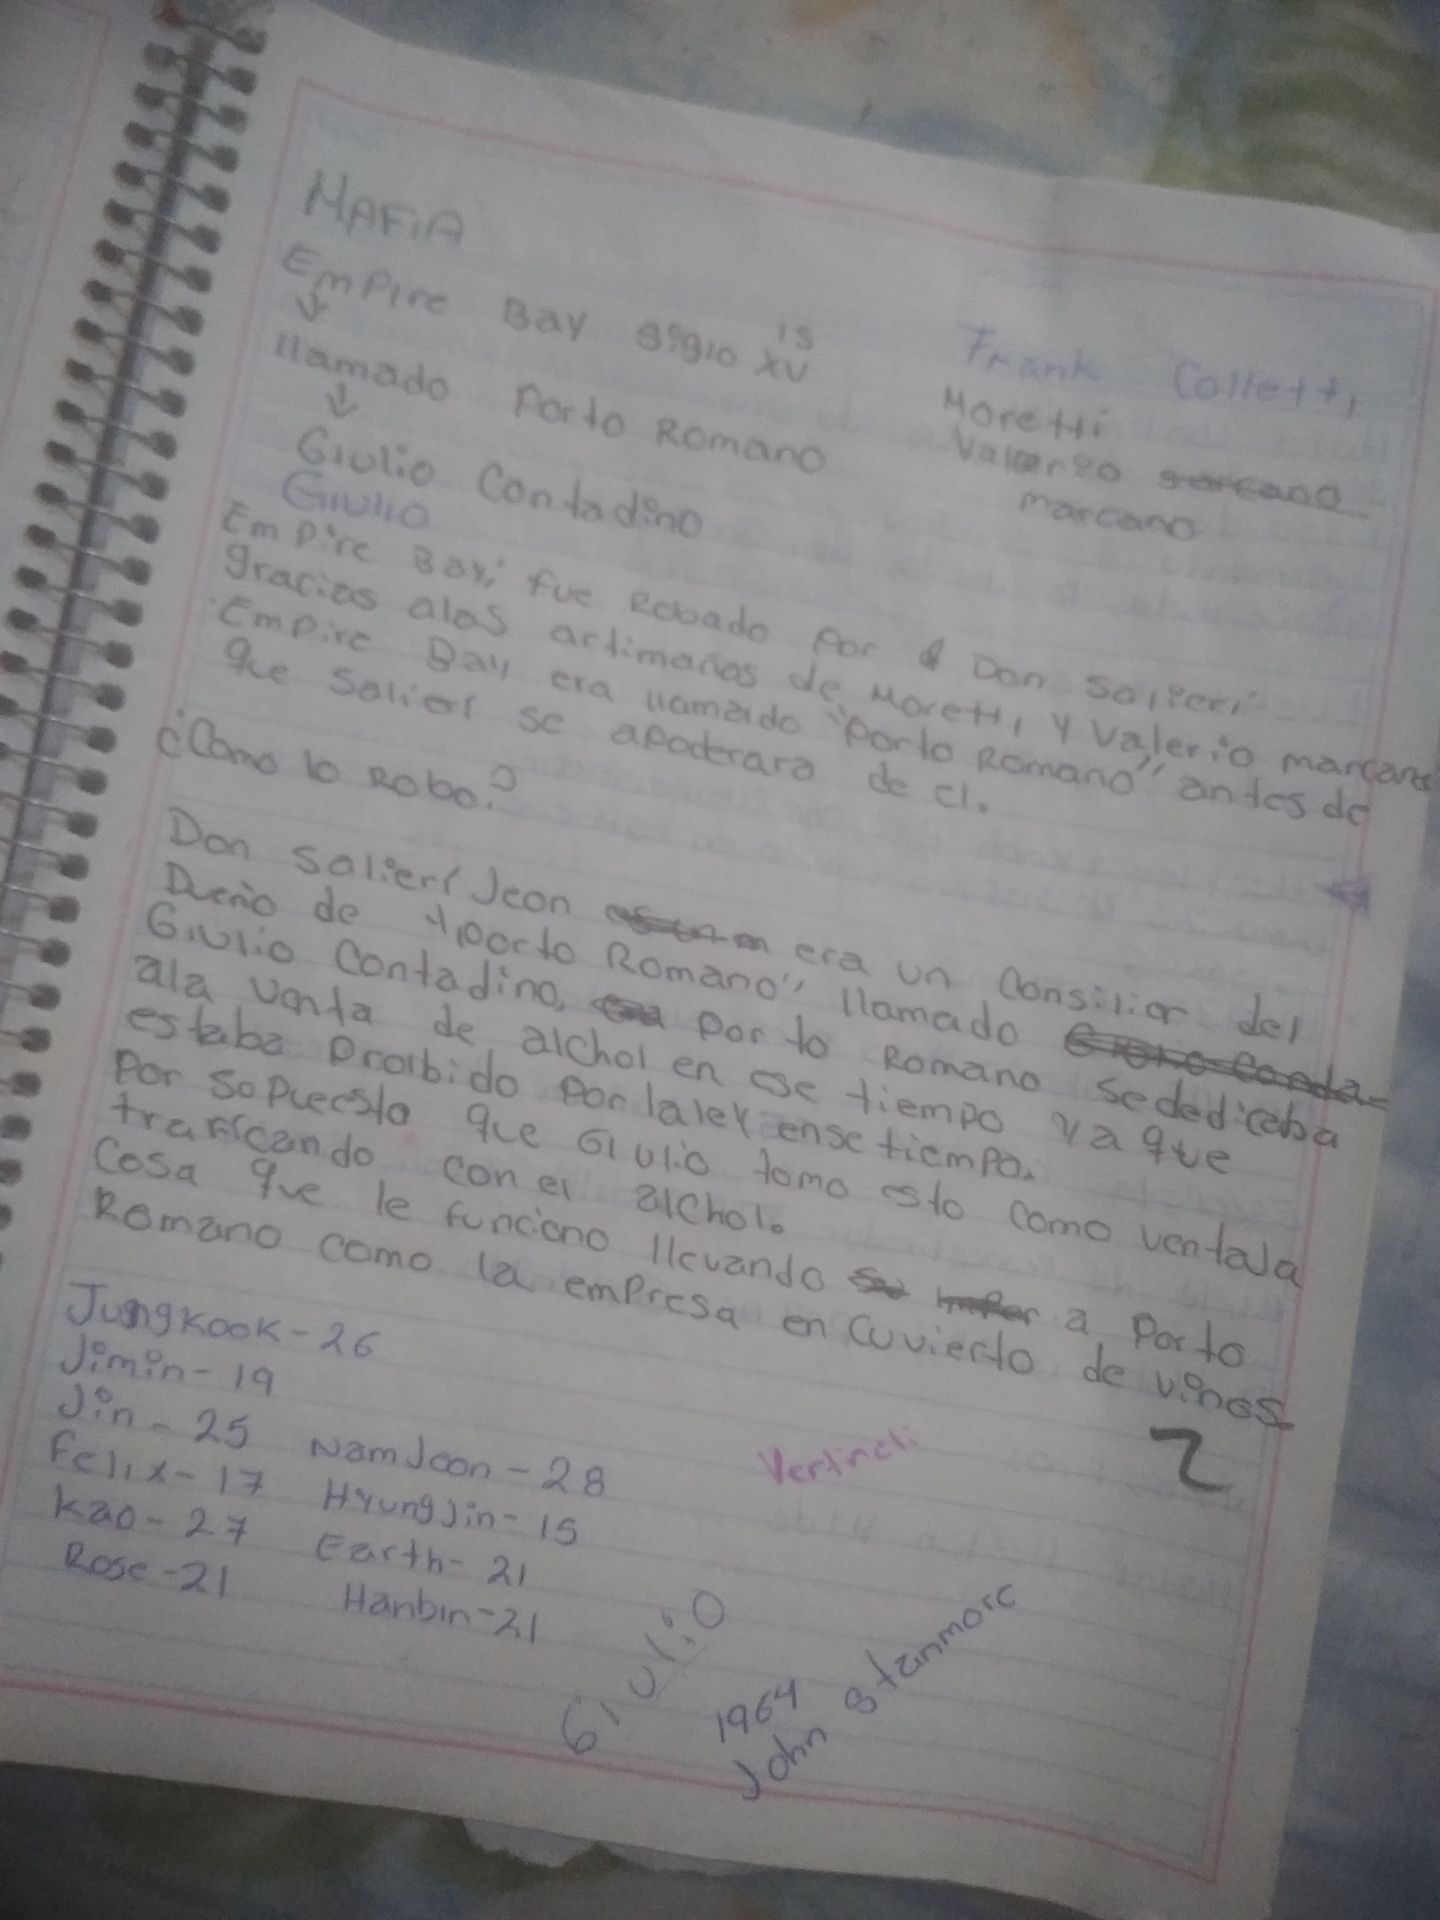 MAFIA
Empire Bay siglo XV 15
llamado Porto Romano
Giulio Contadino
Giulio
Frank Colletti
Moretti
Valerio
marcano
Empire Bay, fue Robado por Don Salieri
gracias alas artimañas de Moretti y Valerio marcano
Empire Bay era llamado "Porto Romano" antes de
que Salieri se apoderara de el.
¿Como lo Robo?
Don Salieri Jeon era un Consilier del
Dueño de "Porto Romano", llamado
Giulio Contadino, Porto Romano se dedicaba
ala venta de alchol en ese tiempo ya que
estaba Proibido Por la ley en se tiempo.
Por sopuesto que Giulio tomo esto como ventaja
traficando con el alchol.
Cosa que le funciono llevando a Porto
Romano como la empresa en cuvierto de vinos
Jungkook - 26
Jimin - 19
Jin - 25 NamJoon - 28
Felix - 17 HyungJin - 15
Kao - 27 Earth - 21
Rose - 21 Hanbin - 21
2
Giulio
1964
John Stanmore